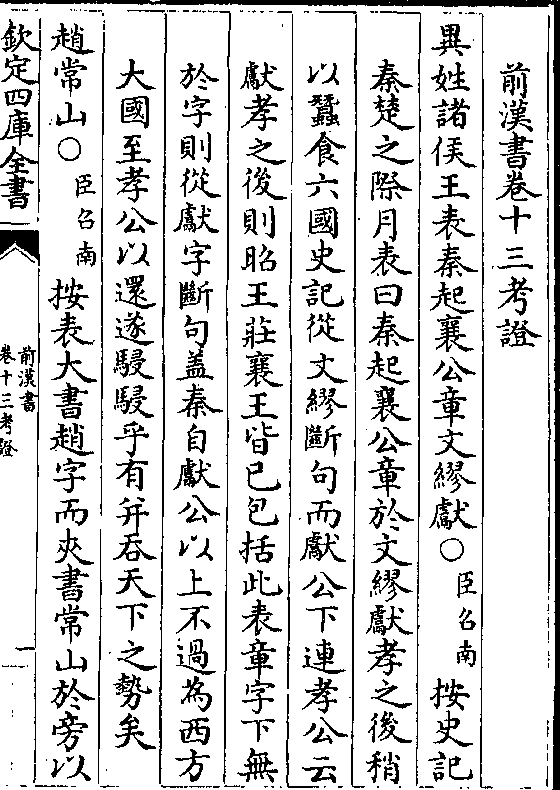 前漢書卷十三考證
異姓諸侯王表秦起襄公章文繆獻○臣召南按史記
秦楚之際月表曰秦起襄公章於文繆獻孝之後稍
以蠶食六國史記從文繆斷句而獻公下連孝公云
獻孝之後則昭王莊襄王皆已包括此表章字下無
於字則從獻字斷句盖秦自獻公以上不過為西方
大國至孝公以還遂駸駸乎有幷吞天下之勢矣
趙常山○臣召南按表大書趙字而夾書常山於旁以
欽定四庫全書
前漢書
卷十三考證
一